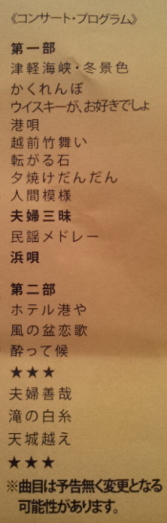 《コンサート・プログラム》
第一部
津軽海峡・冬景色
かくれんぼ
ウイスキーが、お好きでしょ
港唄
越前竹舞い
転がる石
夕焼けだんだん
人間模様
夫婦三昧
民謡メドレー
浜唄
第二部
ホテル港や
風の盆恋歌
酔って候
★★★
夫婦善哉
滝の白糸
天城越え
★★★
※曲目は予告無く変更となる
可能性があります。